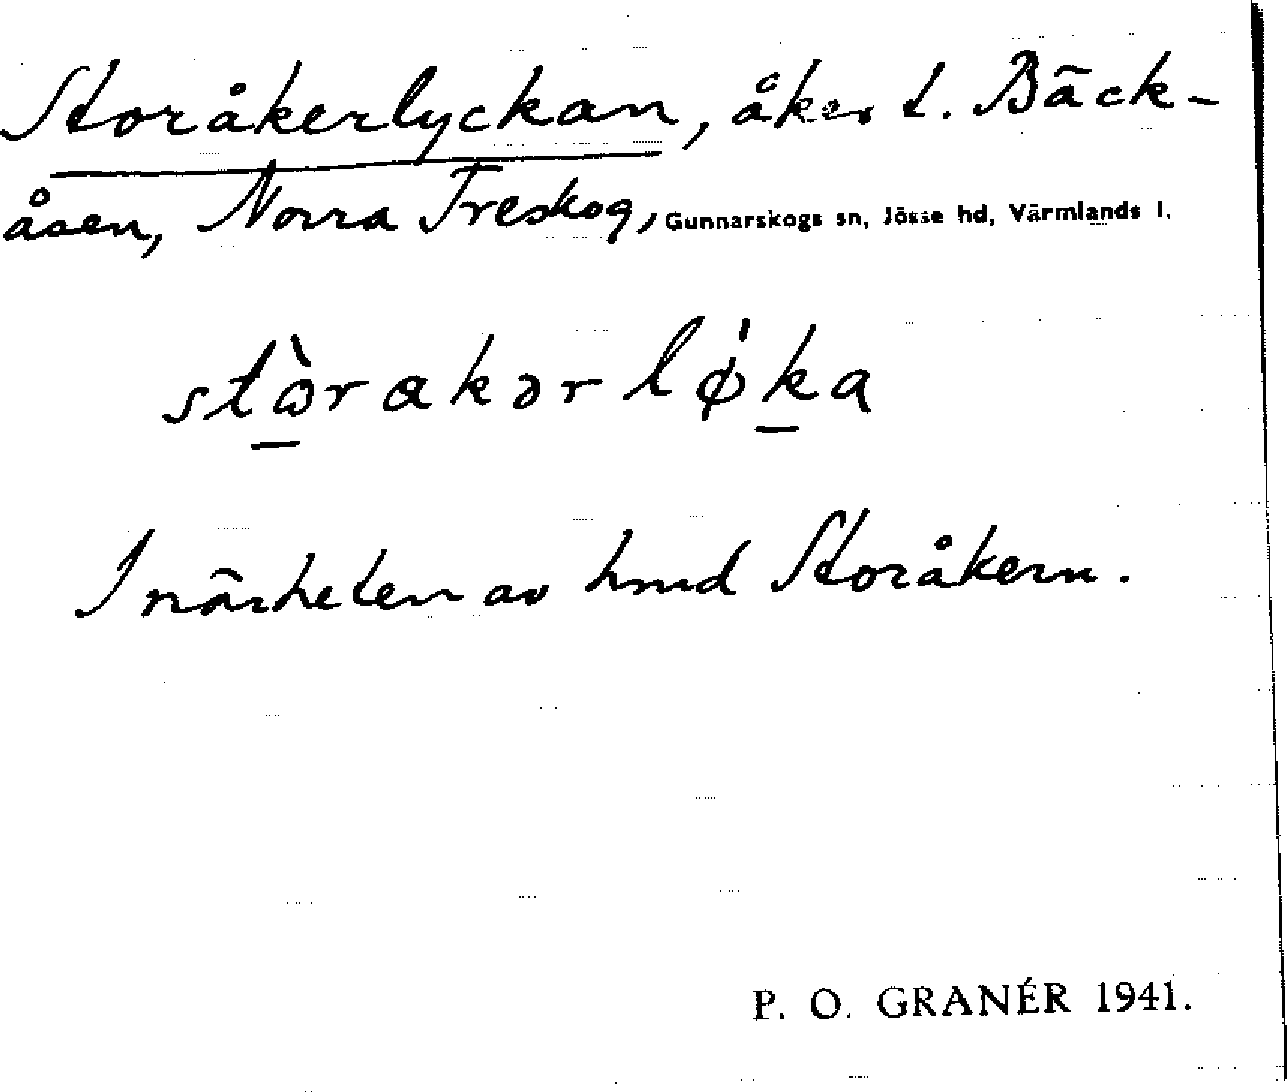 Storåkerlyckan, åker t. Bäck-
åsen, Norra Treskog, Gunnarskogs sn, Jösse hd, Värmlands l.
stɷ̀rakərlø̍ka
I närheten av hmd Storåkern.
P. O. GRANÉR 1941.